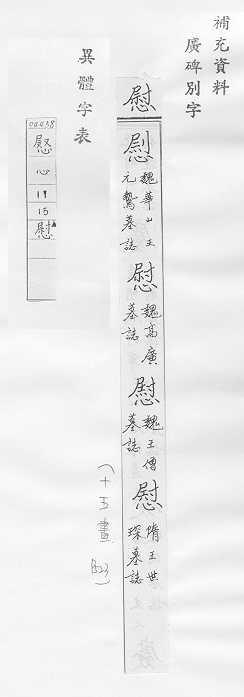 補充資料
廣碑別字
慰
慰
魏華山王
元鷙墓誌
慰
魏高廣
墓誌
慰
魏王僧
墓誌
慰
隋王世
琛墓誌
(十五畫
異體字表
心
19
15
慰